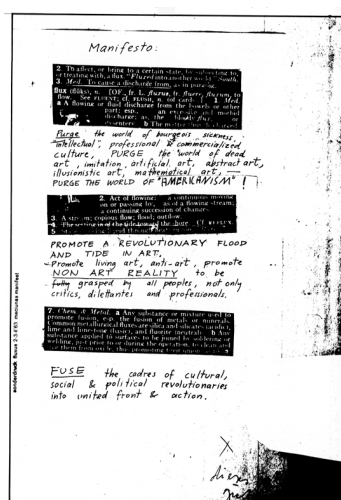 Manifesto:
2. To affect, or bring to a certain state, by subjecting to,
or treating with, a flux. "Fluxed into another world." South.
3. Med. To cause a discharge from, as in purging.
flux (flŭks), n. [OF., fr. L. fluxus, fr. fluere, fluxum, to
flow. See FLUENT; cf. FLUSH, n. (of cards).] 1. Med.
a A flowing or fluid discharge from the bowels or other
part; esp., an excessive and morbid
discharge; as, the bloody flux, or
dysentery. b The matter thus discharged.
Purge the world of bourgeois sickness,
"intellectual", professional & commercialized
culture, PURGE the world of dead
art, imitation, artificial art, abstract art,
illusionistic art, mathematical art, —
PURGE THE WORLD OF "AMERIKANISM"!
2. Act of flowing: a continuous moving
on or passing by, as of a flowing stream;
a continuing succession of changes.
3. A stream; copious flow; flood; outflow.
4. The setting in of the tide toward the shore. Cf. REFLUX.
PROMOTE A REVOLUTIONARY FLOOD
AND TIDE IN ART,
Promote living art, anti-art, promote
NON ART REALITY to be
fully grasped by all peoples, not only
critics, dilettantes and professionals.
7. Chem. & Metal. a Any substance or mixture used to
promote fusion, esp. the fusion of metals or minerals.
Common metallurgical fluxes are silica and silicates (acidic),
lime and limestone (basic), and fluorite (neutral). b Any
substance applied to surfaces to be joined by soldering or
welding, just prior to or during the operation, to clean and
FUSE the cadres of cultural,
social & political revolutionaries
into united front & action.